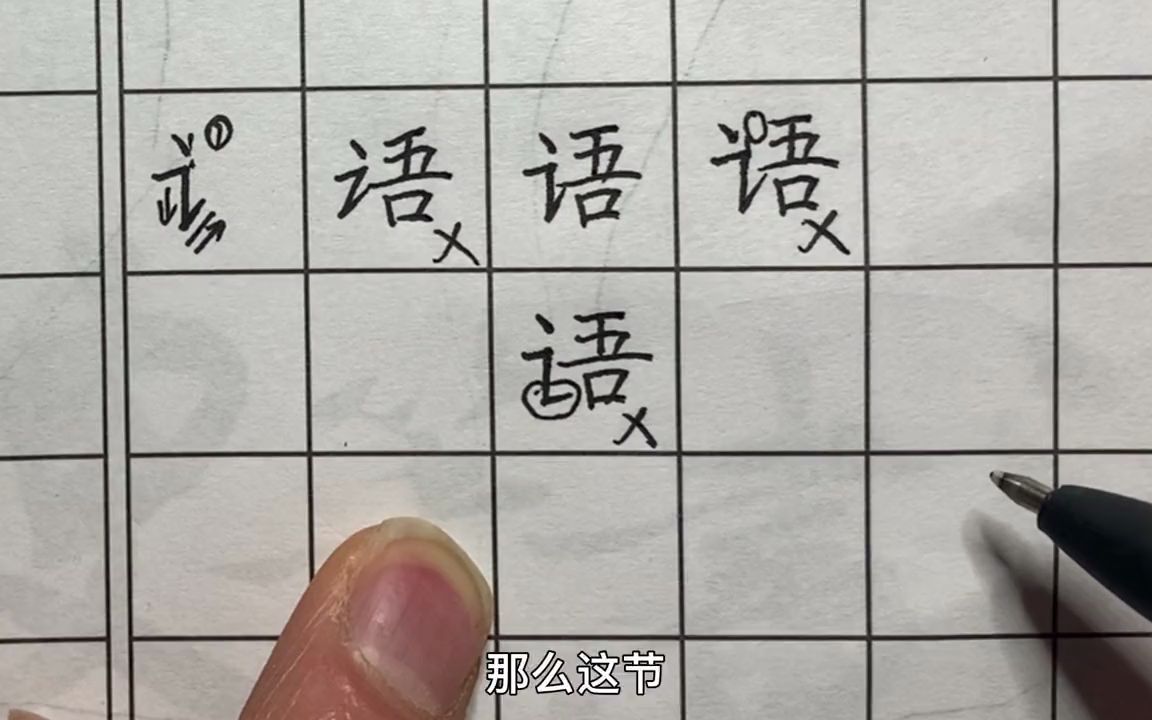 讠① 语× 语 语×
语×
那么这节